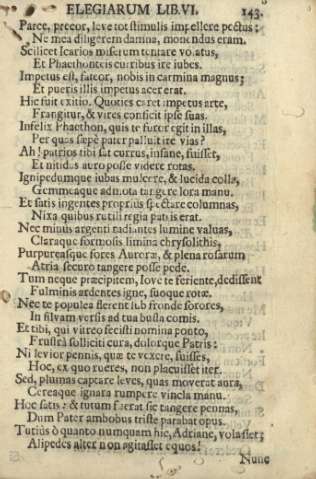 ELEGIARUM LIB. VI. 143.
Parce, precor, leve tot stimulis impellere pectus:
Ne mea diligerem damna, monendus eram.
Scilicet Icarios miserum tentare volatus,
Et Phaethonteis curribus ire iubes.
Impetus est, fateor, nobis in carmina magnus;
Et pueris illis impetus acer erat.
Hic fuit exitio. Quoties caret impetus arte,
Frangitur, & vires conficit ipse suas.
Infelix Phaethon, quis te furor egit in illas,
Per quas sæpe pater palluit ire vias?
Ah! patrios tibi sat currus, insane, fuisset,
Et nitidas auro posse videre rotas.
Ignipedumque iubas mulcere, & lucida colla,
Gemmeaque admota tangere lora manu.
Et satis ingentes proprius spectare columnas,
Nixa quibus rutili regia patris erat.
Nec minus argenti radiantes lumine valuas,
Claraque formosis limina chrysolithis,
Purpureasque fores Auroræ, & plena rosarum
Atria securo tangere posse pede.
Tum neque præcipitem, Iove te feriente, dedissent
Fulminis ardentes igne, suoque rotæ.
Nec te populea flerent sub fronde sorores,
In silvam versis ad tua busta comis.
Et tibi, qui vitreo fecisti nomina ponto,
Frustrà solliciti cura, dolorque Patris:
Ni levior pennis, quæ te vexere, fuisses,
Hoc, ex quo rueres, non placuisset iter.
Sed, plumas captare leves, quas moverat aura,
Cereaque ignara rumpere vincla manu.
Hoc satis: & tutum fuerat sic tangere pennas,
Dum Pater ambobus triste parabat opus.
Tutiùs ò quanto numquam hic, Adriane, volasset;
Alipedes alter non agitasset equos!
Nunc